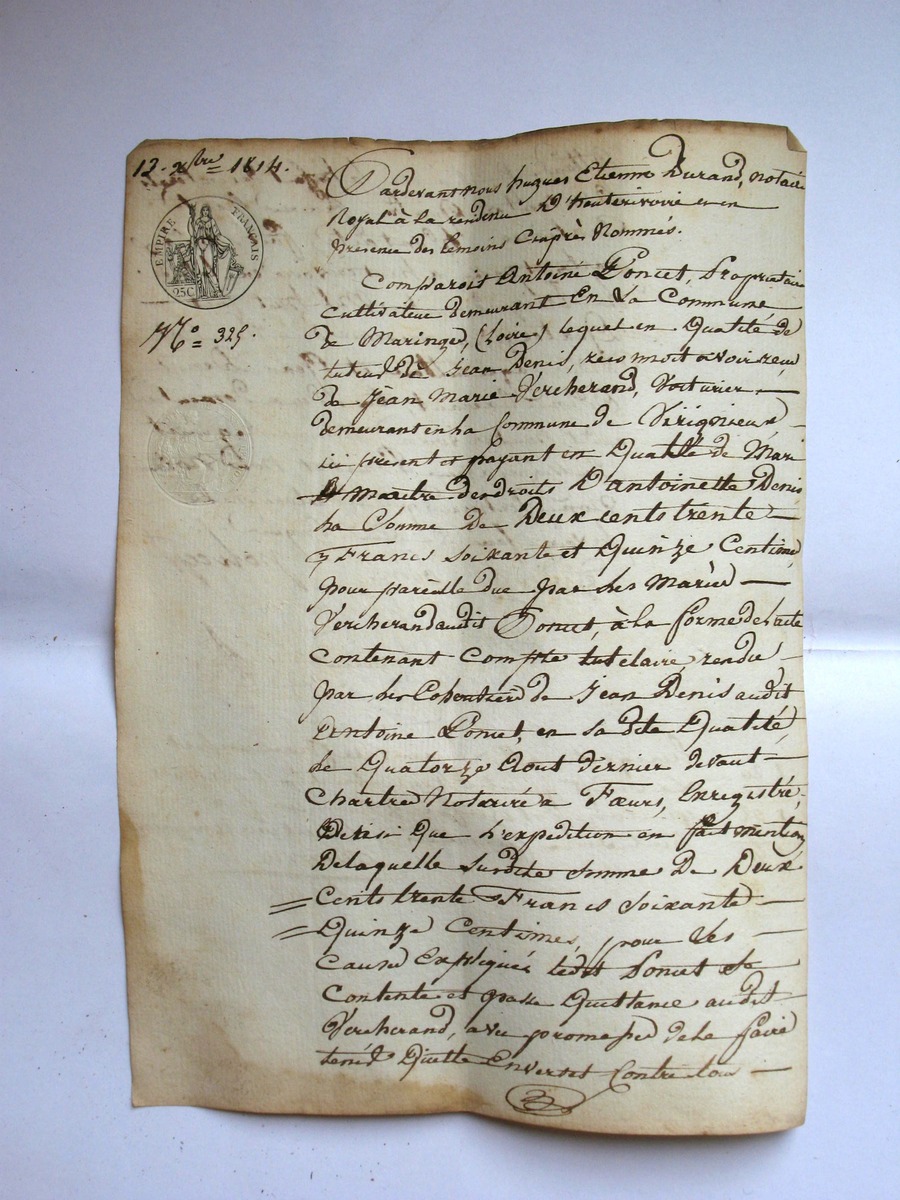 12. xbre 1814.
EMPIRE FRANÇAIS
25C
N.o 325.
Pardevant nous hugues Etienne Durand, notaire
Royal à la residence D'hauterivoire et en
presence des temoins Ciaprès Nommés.
Comparois Antoine Poncet, Propriétaire
cultivateur demeurant En La Commune
De Maringes, (Loire) lequel en Qualité de
tuteur de Jean Denis, reconnoit avoir reçu
de Jean Marie Vercherand, Voiturier
demeurant en la Commune de Virignieux
ici présent et payant en Qualité de Mari
et maitre des droits D'antoinette Denis
la Somme De Deux cents trente
Francs soixante et Quinze Centimes
pour pareille due par les Mariés
Vercherand audit Poncet, à la forme de lacte
contenant Compte tutelaire rendu
par les Cohéritiers de Jean Denis audit
Antoine Poncet, en sa dite Qualité,
le Quatorze Aout dernier devant
Chartre Notaire à Feurs, Enregistré,
Delaquelle susdite Somme De Deux
Cents trente Francs soixante
Quinze Centimes, pour les
causes Expliqués ledit Poncet se
Contente et passe Quittance audit
Vercherand, avec promesse de le faire
tenir Quitte Envers et Contre tous